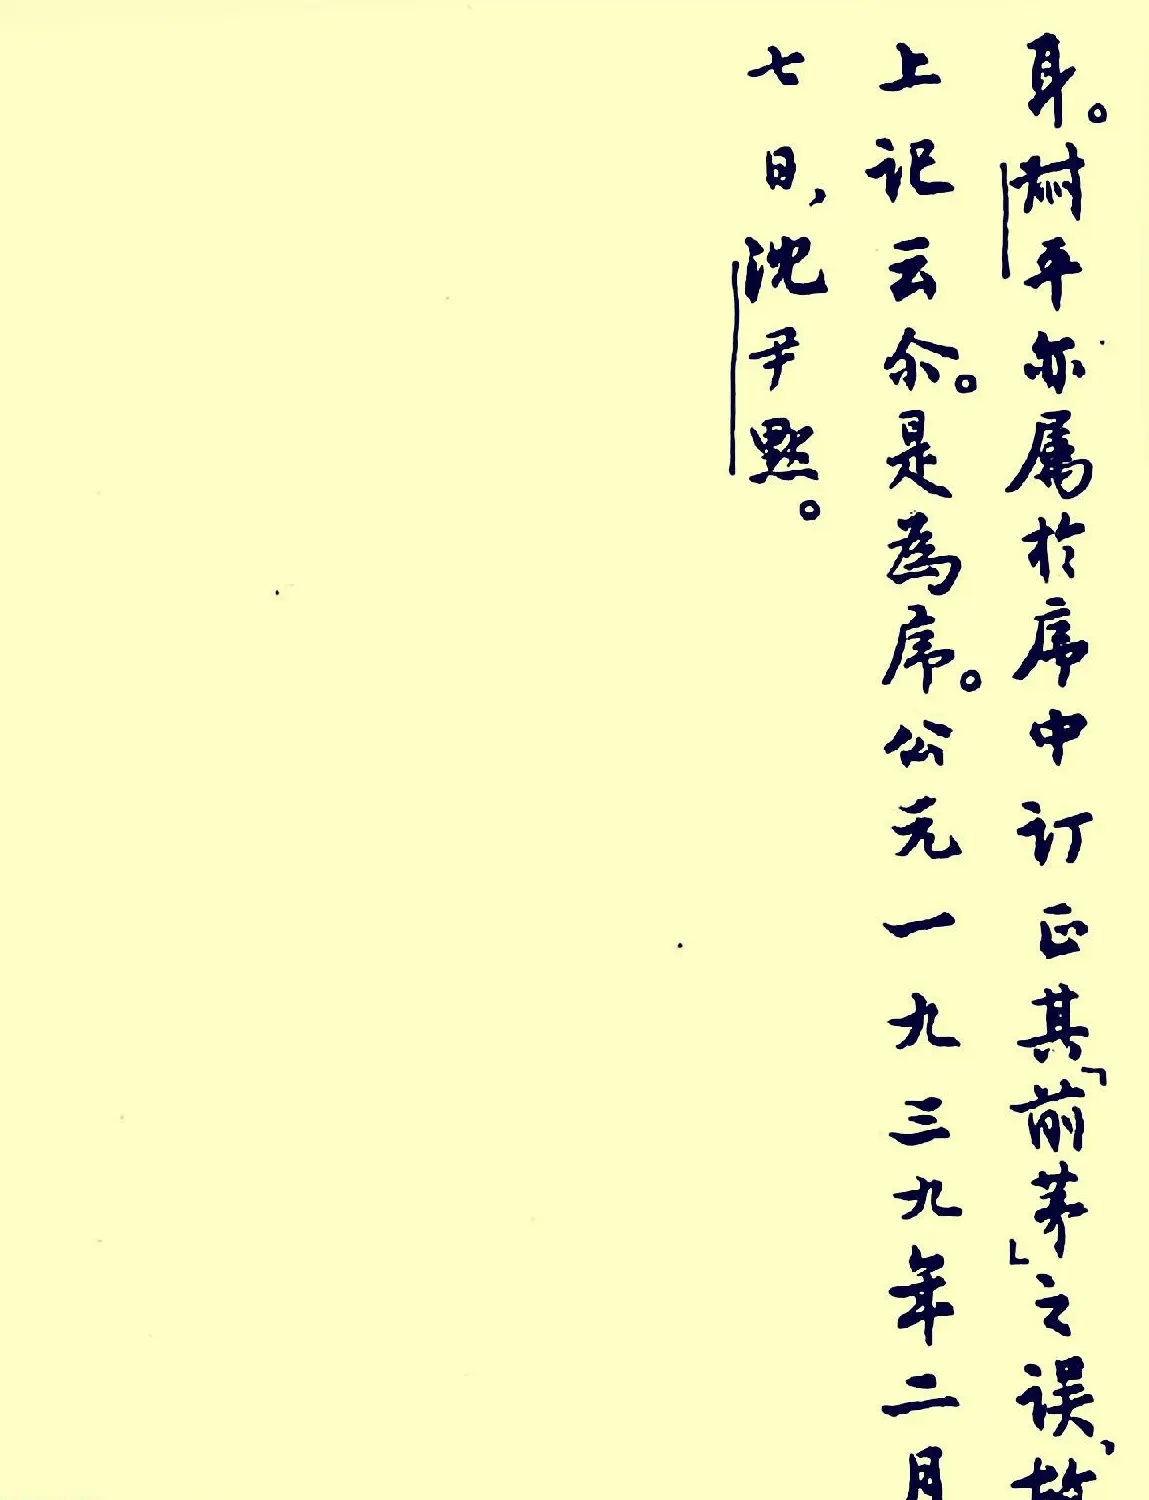 耳。平亦属於序中订正其「前茅」之误、故
上记云尒。是為序。公元一九三九年二月
七日，沈尹默。